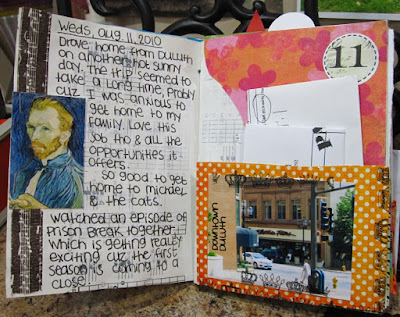 Weds, Aug 11, 2010
Drove home from Duluth
on another hot sunny
day. The trip seemed to
take a long time, probly
cuz I was anxious to
get home to my
family. Love this
job tho & all the
opportunities it
offers.
so good to get
home to michael
& the cats.
watched an episode of
Prison Break together,
which is getting really
exciting cuz the first
season is coming to a
close!
11
DOWNTOWN
DULUTH